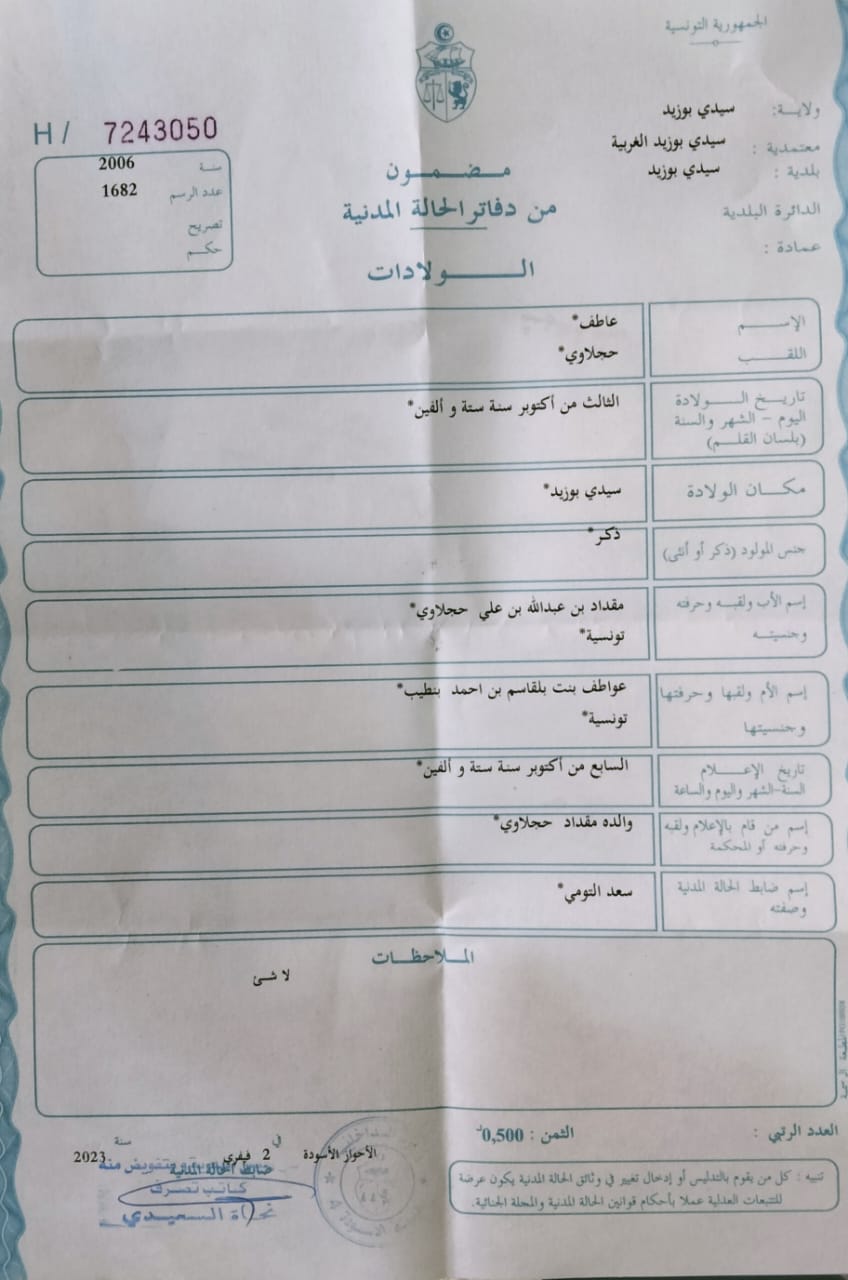 الجمهورية التونسية
ولايـة: سيدي بوزيد
معتمدية : سيدي بوزيد الغربية
بلدية : سيدي بوزيد
الدائرة البلدية
عمادة :
H / 7243050
سنة 2006
عدد الرسم 1682
تصريح
حكم
مضمون
من دفاتر الحالة المدنية
الولادات
الإسم عاطف*
اللقب حجلاوي*
تاريخ الولادة
اليوم – الشهر والسنة
(بلسان القلم)
الثالث من أكتوبر سنة ستة و ألفين*
مكان الولادة سيدي بوزيد*
جنس المولود (ذكر أو أنثى) ذكر*
إسم الأب ولقبه وحرفته
وجنسيته
مقداد بن عبدالله بن علي حجلاوي*
تونسية*
إسم الأم ولقبها وحرفتها
وجنسيتها
عواطف بنت بلقاسم بن احمد بنطيب*
تونسية*
تاريخ الإعلام
السنة-الشهر واليوم والساعة
السابع من أكتوبر سنة ستة و ألفين*
إسم من قام بالإعلام ولقبه
وحرفته أو المحكمة
والده مقداد حجلاوي*
إسم ضابط الحالة المدنية
وصفته
سعد التومي*
الملاحظات
لا شئ
العدد الرتبي : الثمن : 0,500د
تنبيه : كل من يقوم بالتدليس أو إدخال تغيير في وثائق الحالة المدنية يكون عرضة
للتتبعات العدلية عملا بأحكام قوانين الحالة المدنية والمجلة الجنائية.
الأحواز الأسودة في 2 فيفري سنة 2023
ضابط الحالة المدنية
وبتفويض منه
كاتب تصرف
نجاة السعيدي